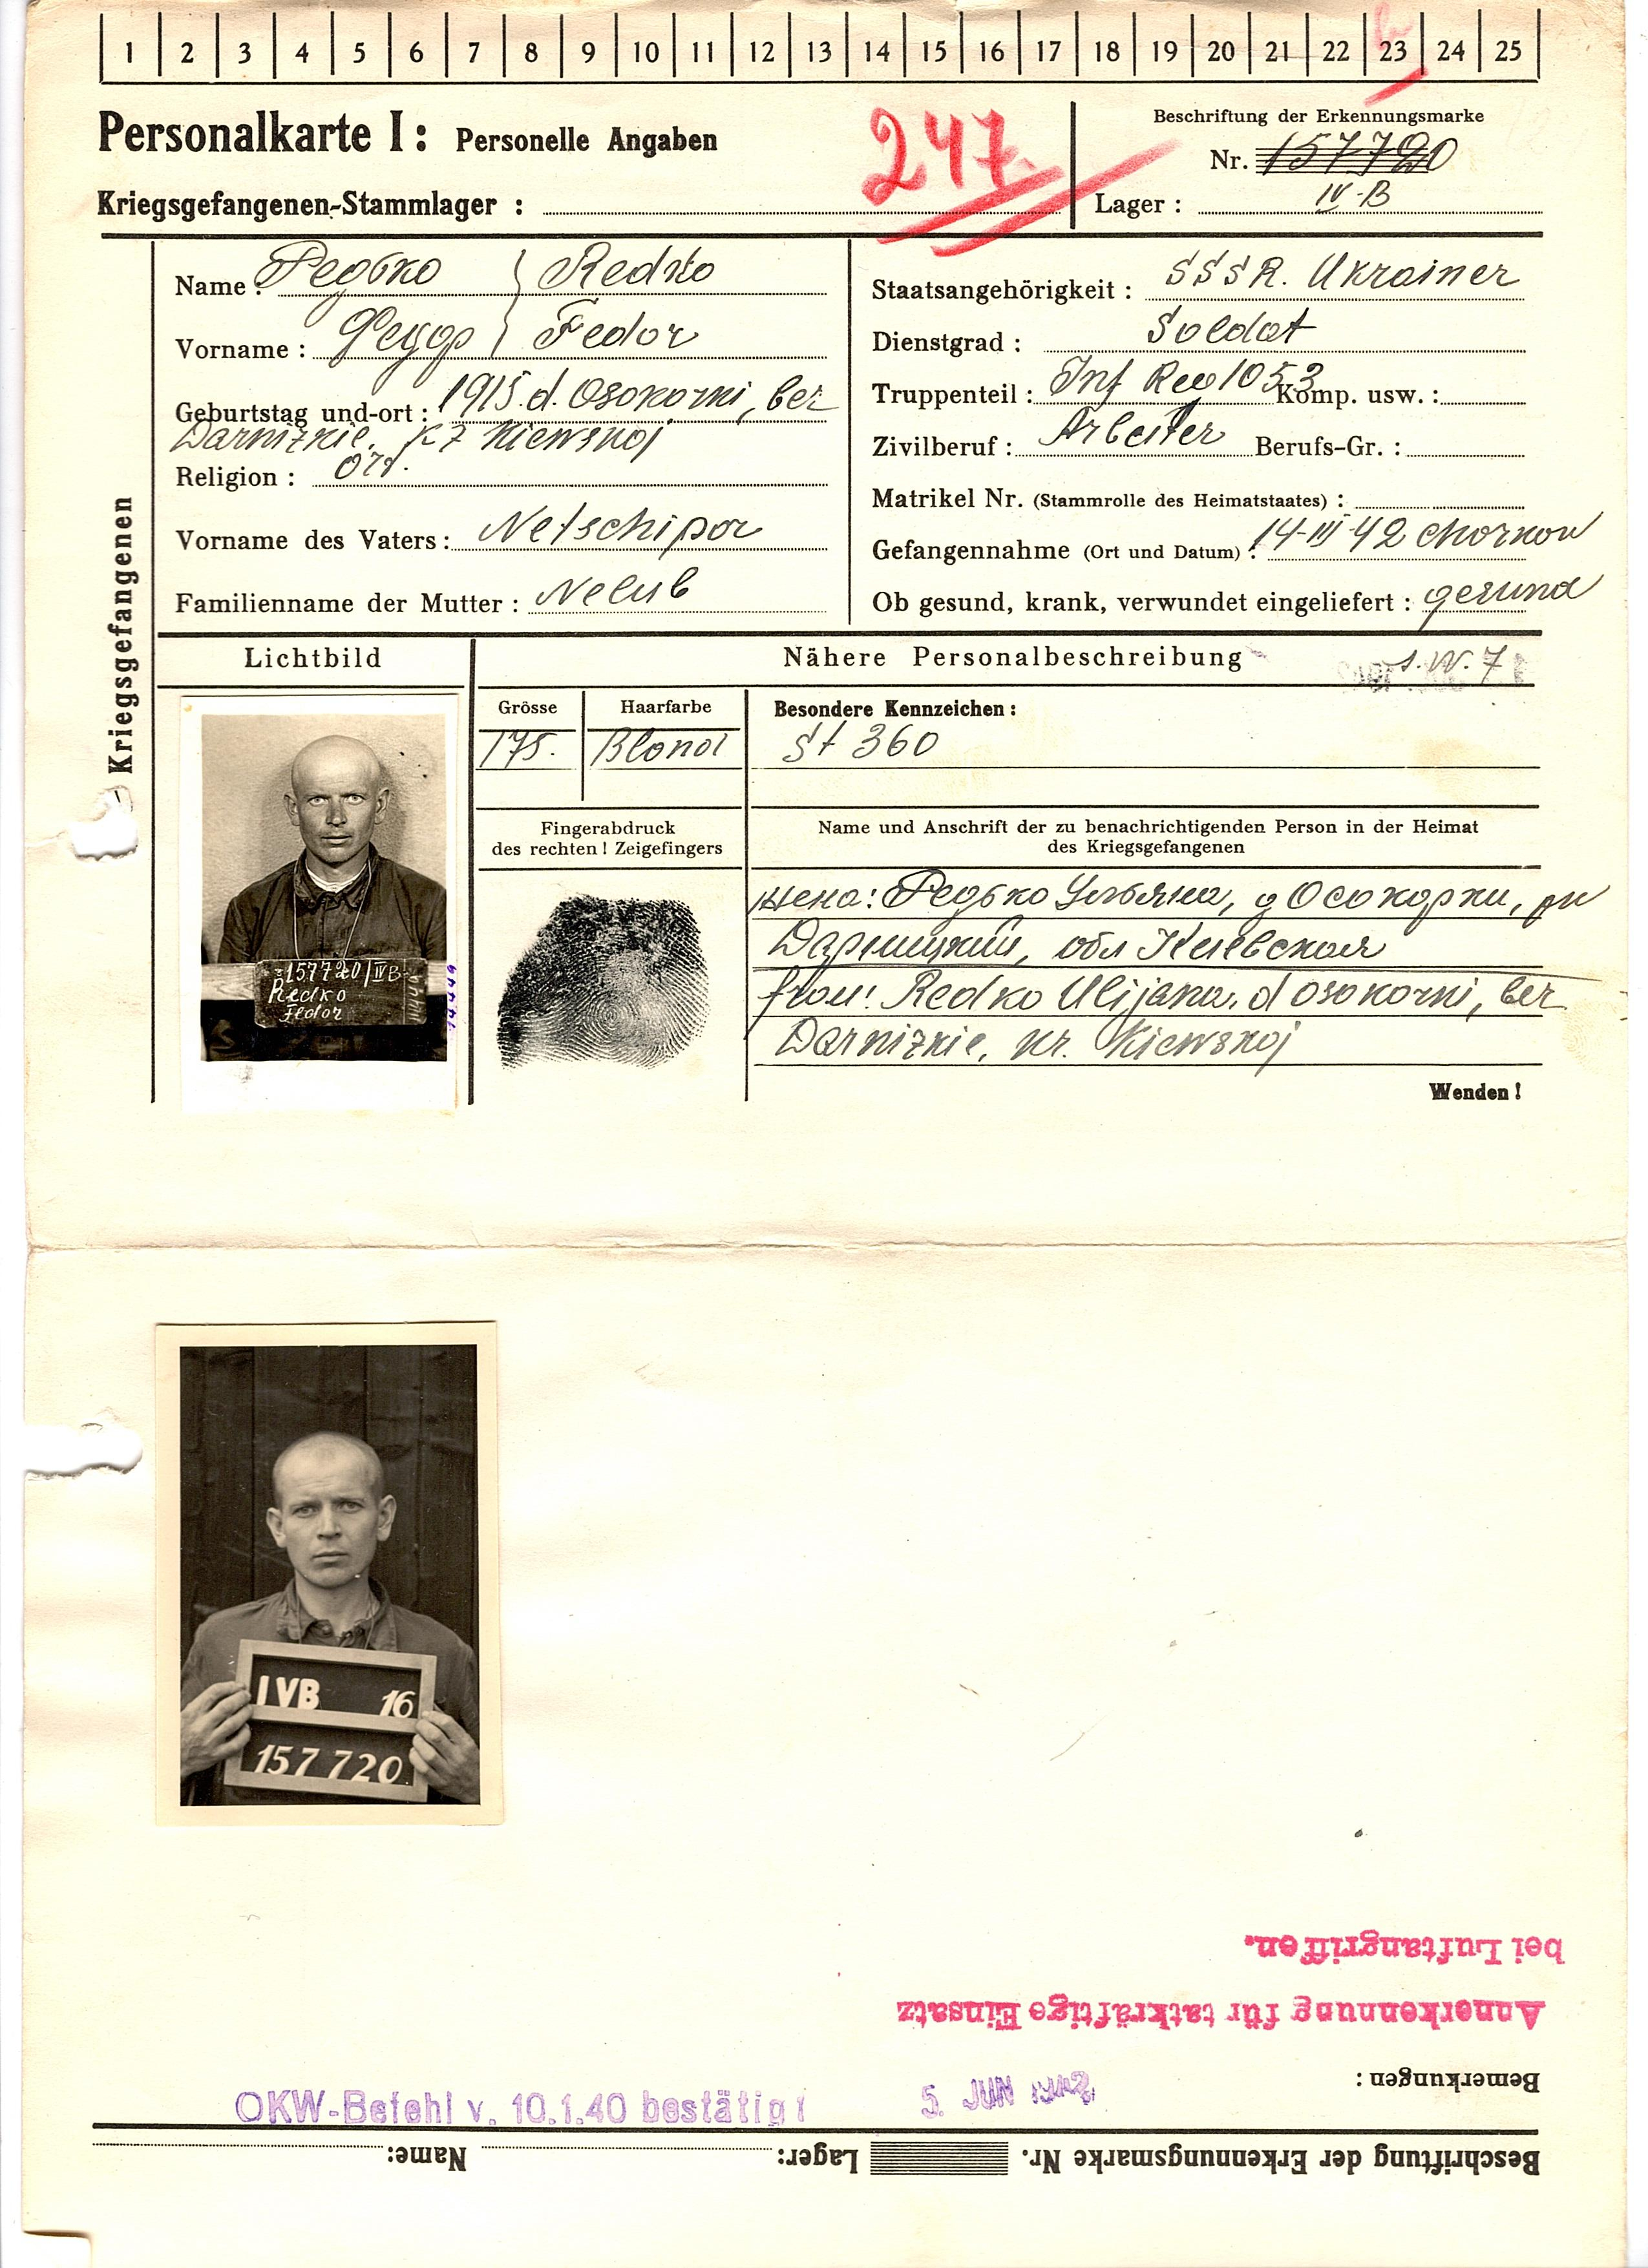 1 2 3 4 5 6 7 8 9 10 11 12 13 14 15 16 17 18 19 20 21 22 23 24 25
Personalkarte I: Personelle Angaben
247.
Beschriftung der Erkennungsmarke
Nr. 157720
Kriegsgefangenen-Stammlager :
Lager : IV-B
Kriegsgefangenen
Name: Редько Redko
Vorname : Федор Fedor
Geburtstag und -ort : 1915. d. Osokorni, ber
Darnizkie, Kiewskoj
Religion : Ort.
Vorname des Vaters : Netschipor
Familienname der Mutter : Nelub
Staatsangehörigkeit : SSSR. Ukrainer
Dienstgrad : Soldat
Truppenteil : Inf Reg 1053 Komp. usw. :
Zivilberuf : Arbeiter Berufs-Gr. :
Matrikel Nr. (Stammrolle des Heimatstaates) :
Gefangennahme (Ort und Datum) : 14-III-42 Charkow
Ob gesund, krank, verwundet eingeliefert : gesund
Lichtbild
Nähere Personalbeschreibung
s. W. 7
Grösse
175.
Haarfarbe
Blond
Besondere Kennzeichen :
St 360
Fingerabdruck
des rechten ! Zeigefingers
Name und Anschrift der zu benachrichtigenden Person in der Heimat
des Kriegsgefangenen
Жена: Редько Ульяна, д Осокорки, рн
Дарницкий, обл Киевская
frau: Redko Ulijana, d osokorni, ber
Darnizkie, kr. Kiewskoj
157720/IVB
Redko
Fedor
Wenden !
IVB 16
157720
bei Luftangriffen.
Anerkennung für tatkräftige Einsatz
Bemerkungen :
OKW-Befehl v. 10.1.40 bestätigt
5. JUN 1942
Beschriftung der Erkennungsmarke Nr. Lager: Name: